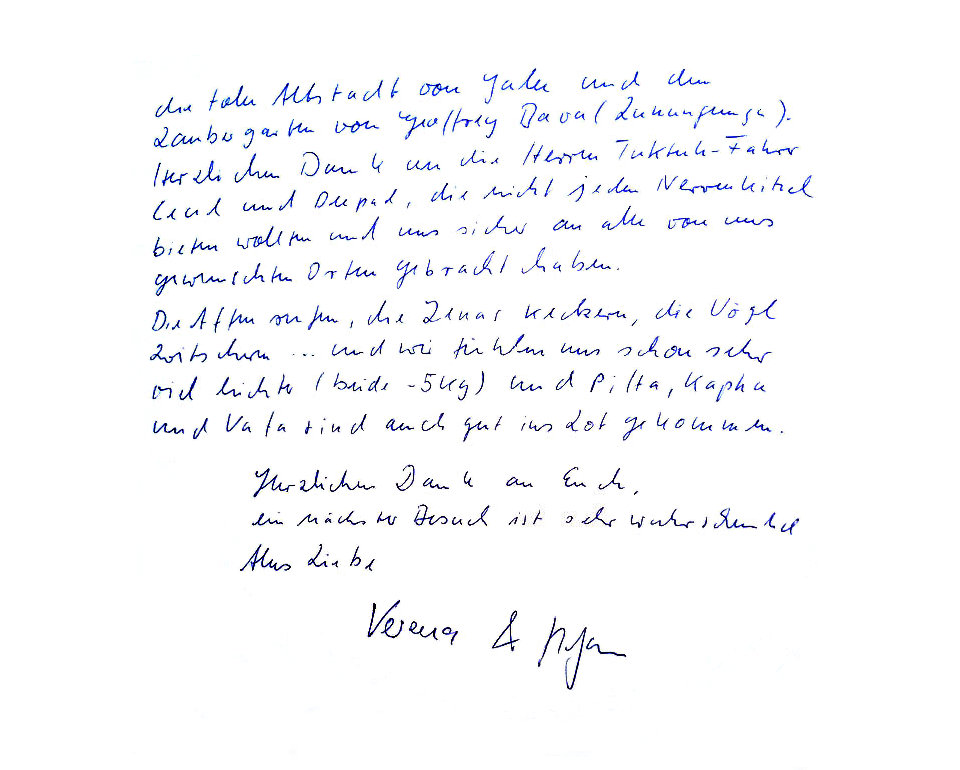 die tolle Altstadt von Galle und den
Zaubergarten von Geoffrey Bawa (Lunuganga).
Herzlichen Dank an die Herren Tuktuk-Fahrer
und Deepal, die nicht jeden Nervenkitzel
bieten wollten und uns sicher an alle von uns
gewünschten Orten gebracht haben.
Die Affen rufen, die keckern, die Vögel
zwitschern ... und wir fühlen uns schon sehr
viel leichter (beide -5kg) und Pitta, Kapha
und Vata sind auch gut ins Lot gekommen.
Herzlichen Dank an Euch,
ein nächster Besuch ist sehr wahrscheinlich
Alles Liebe
Verena &